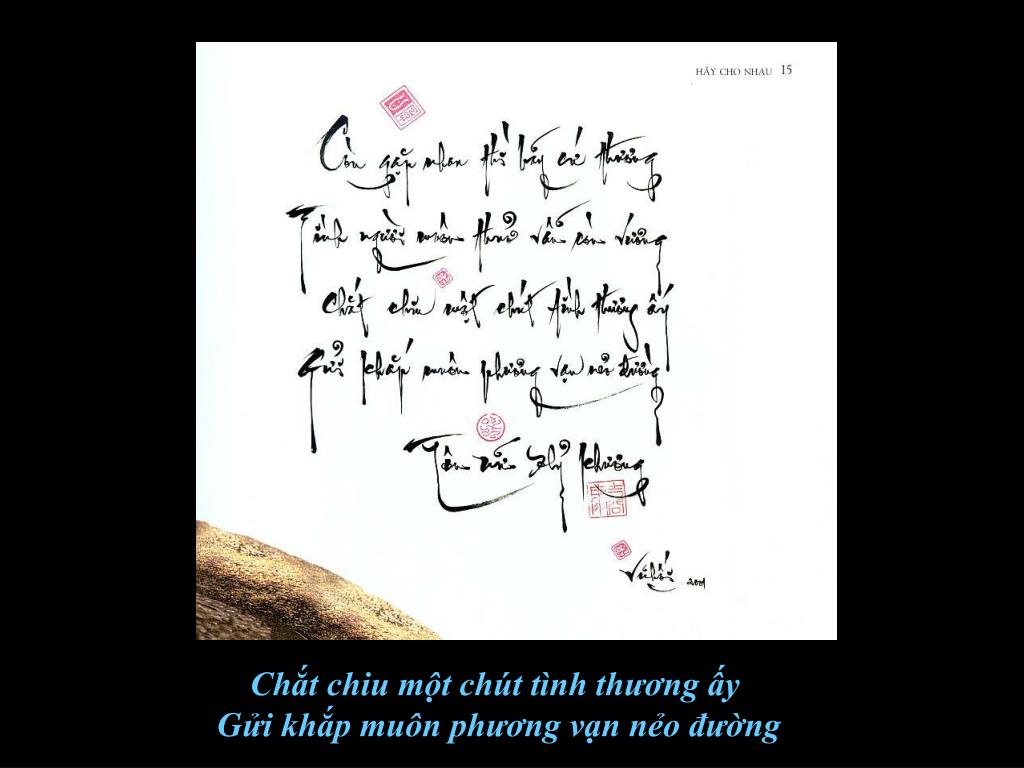 HÃY CHO NHAU 15
Còn gặp nhau thì hãy cứ thương
Tình người muôn thuở vẫn còn vương
Chắt chiu một chút tình thương ấy
Gửi khắp muôn phương vạn nẻo đường
Tôn Nữ Hỷ Khương
Vũ Hối 2001
Chắt chiu một chút tình thương ấy
Gửi khắp muôn phương vạn nẻo đường